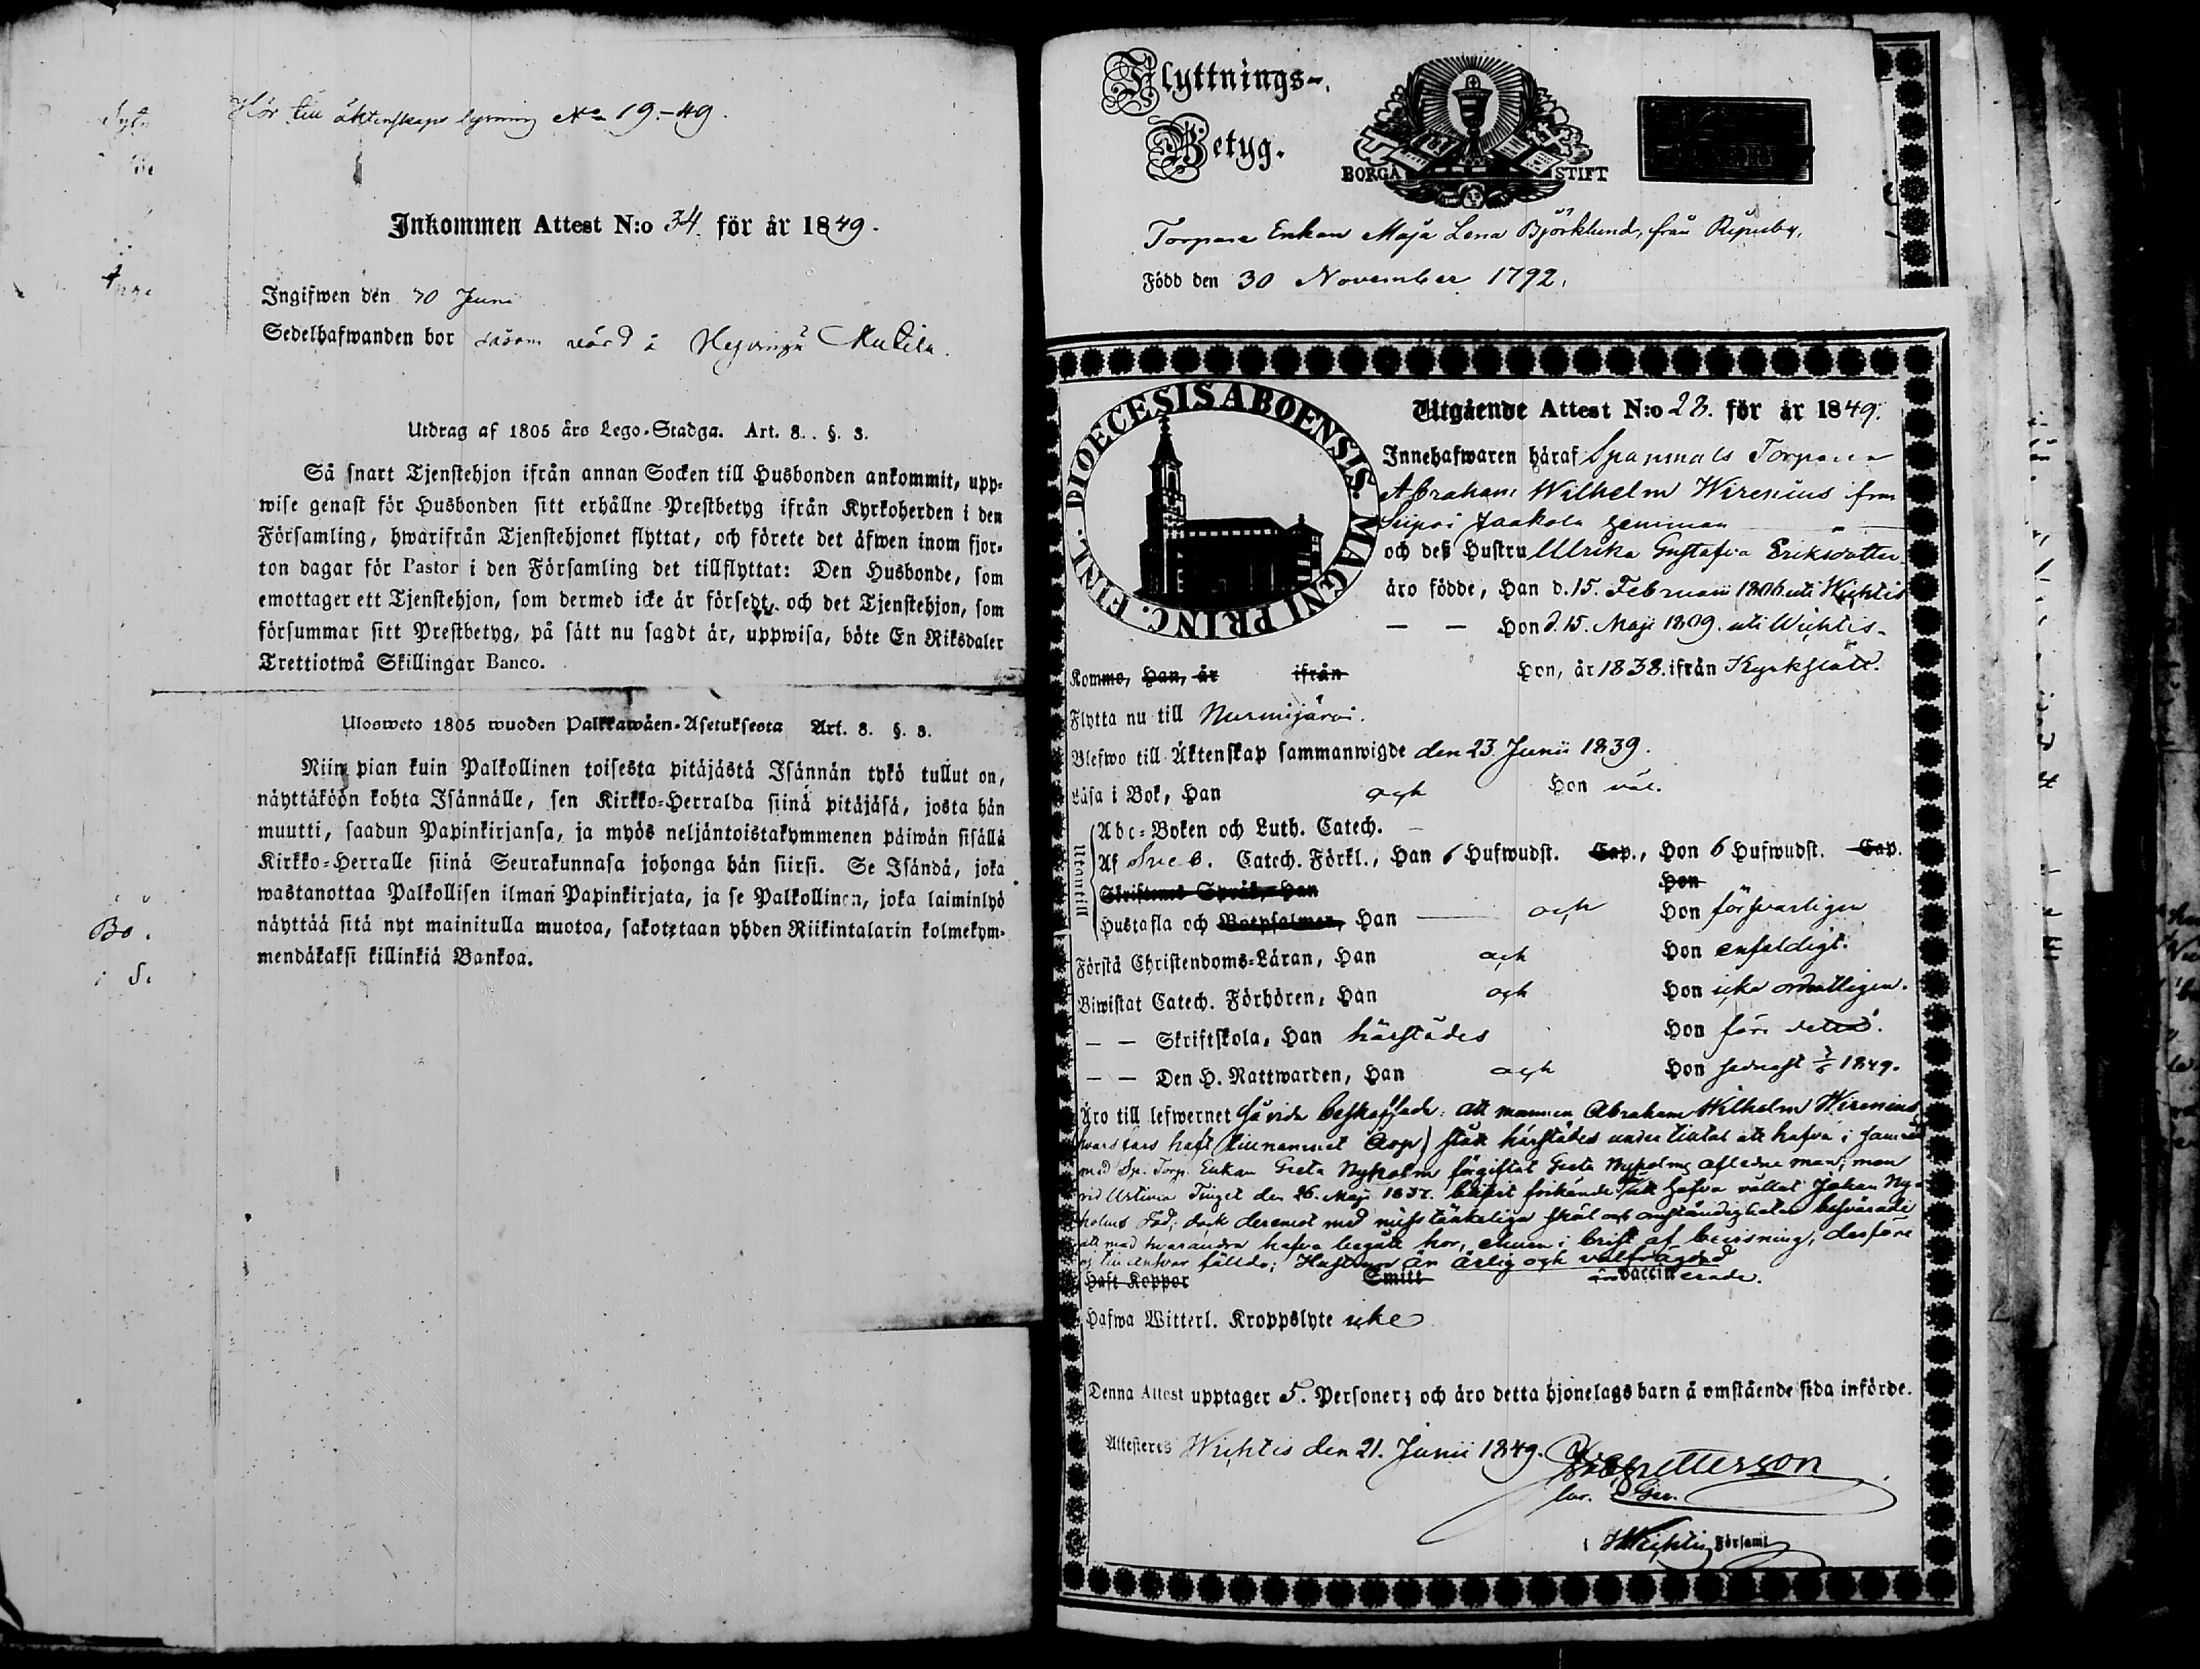 Hör till äktenskaps lysning No 19.-49.
Inkommen Attest N:o 34. för år 1849.
Ingifwen den 30 Juni
Sedelhafwanden bor såsom värd i
Utdrag af 1805 års Lego-Stadga. Art. 8. §. 3.
Så snart Tjenstehjon ifrån annan Socken till Husbonden ankommit, upp-
wise genast för Husbonden sitt erhållne Prestbetyg ifrån Kyrkoherden i den
Församling, hwarifrån Tjenstehjonet flyttat, och förete det äfwen inom fjor-
ton dagar för Pastor i den Församling det tillflyttat: Den Husbonde, som
emottager ett Tjenstehjon, som dermed icke är försedt, och det Tjenstehjon, som
försummar sitt Prestbetyg, på sätt nu sagdt är, uppwisa, böte En Riksdaler
Trettiotwå Skillingar Banco.
Ulosweto 1805 wuoden Palkkawäen-Asetuksesta Art. 8. §. 3.
Niin pian kuin Palkollinen toisesta pitäjästä Isännän tykö tullut on,
näyttäköön kohta Isännälle, sen Kirkko-Herralda siinä pitäjäsä, josta hän
muutti, saadun Papinkirjansa, ja myös neljäntoistakymmenen päiwän sisällä
Kirkko-Herralle siinä Seurakunnasa johonga hän siirsi. Se Isändä, joka
wastanottaa Palkollisen ilman Papinkirjata, ja se Palkollinen, joka laiminlyö
näyttää sitä nyt mainitulla muotoa, sakotetaan yhden Riikintalarin kolmekym-
mendäkaksi killinkiä Bankoa.
Flyttnings-
Betyg.
BORGÅ STIFT
Torpare Enkan Maja Lena Björklund, från
Född den 30 November 1792.
DIOECESIS ABOENSIS. MAGNI PRINC. FINL.
Utgående Attest N:o 28. för år 1849.
Innehafwaren häraf Spanmåls Torparen
Abraham Wilhelm Wirenius från
Siipoi Jaakola hemman
och dess Hustru Ulrika Gustafva Eriksdotter
äro födde, Han d. 15. Februarii 1806. uti Wichtis
— — Hon d. 15. Maji 1809. uti Wichtis.
Komne, Han, år ifrån Hon, år 1838. ifrån Kyrkslätt.
Flytta nu till Nurmijärvi.
Blefwo till Äktenskap sammanwigde den 23. Junii 1839.
Läsa i Bok, Han och Hon väl.
Utantill
Abc-Boken och Luth. Catech. —
Af Sveb. Catech. Förkl., Han 6 Hufwudst. Cap., Hon 6 Hufwudst. Cap.
Skriftenes Språk, Han Hon
Hustafla och Botpsalmer, Han — och Hon försvarligen
Förstå Christendoms-Läran, Han och Hon enfaldigt.
Biwistat Catech. Förhören, Han och Hon icke ordentligen.
— — Skriftskola, Han härstädes Hon före detta.
— — Den H. Nattwarden, Han och Hon sednast 3/6 1849.
Äro till lefwernet så vida beskaffade: att mannen Abraham Wilhelm Wirenius,
haft tillnamnet stått härstädes under tilltal att hafva i samråd
med Sp. Torp. Enkan Greta Nyholm förgiftat Greta Nyholms aflidne man; men
vid Urtima Tinget den 26. Maji 1837. blifvit frikände att hafva vållat Johan Ny-
holms död; dock deremot med misstänkeliga skäl och omständigheter besvärade
att med hvarandra hafva begått hor, ehuru i brist af bevisning, derföre
ej till ansvar fällde; Hustrun är ärlig och välfrägdad
Haft Koppor Smitt äro vaccinerade.
Hafwa Witterl. Kroppslyte icke
Denna Attest upptager 5. Personer; och äro detta hjonelags barn å omstående sida införde.
Attesteres Wichtis den 21. Junii 1849.
i Wichtis Församl.